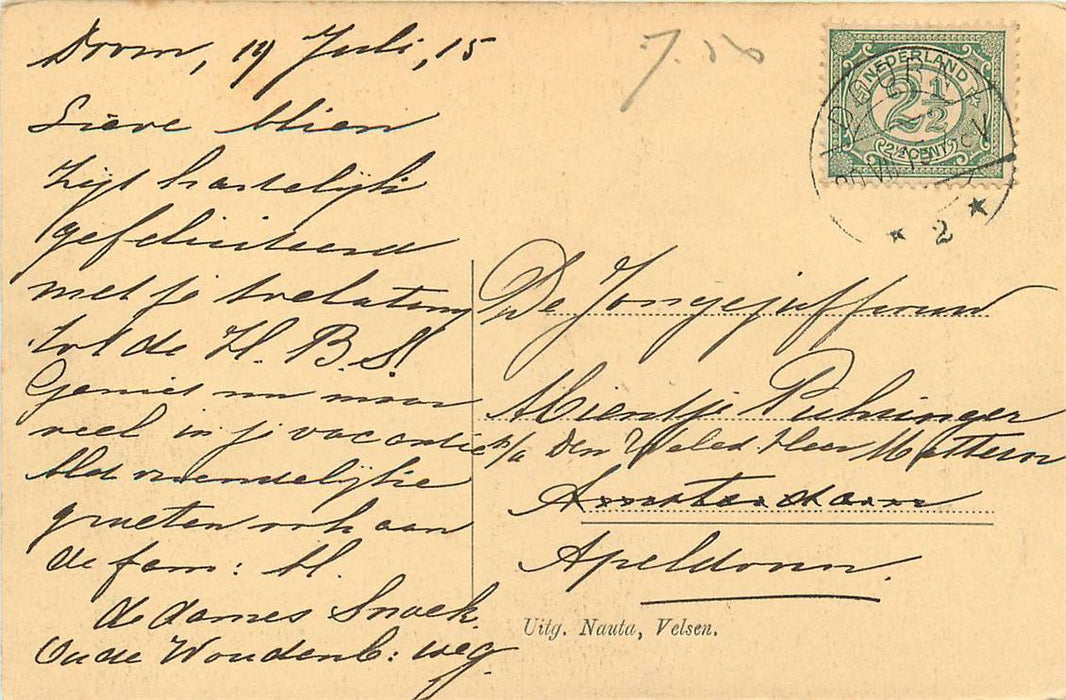 Doorn, 19 Juli, 15
Lieve Mien
Zijt hartelijk
gefeliciteerd
met je toelating
tot de H. B. S!
Geniet nu maar
veel in je vacantie
Met vriendelijke
groeten ook aan
de fam: M.
de dames Snoek.
Oude Woudenb: weg
7.50
NEDERLAND
2½
2½ CENT
2
De Jongejuffrouw
Mientje Puhringer
p/a den WelEd. Heer Mattern
Amsterdam
Apeldoorn.
Uitg. Nauta, Velsen.